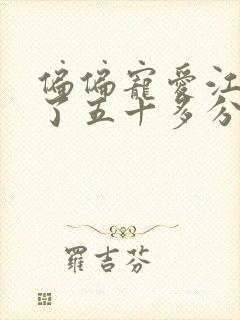 偏偏寵愛江
了五十多分
羅吉芬